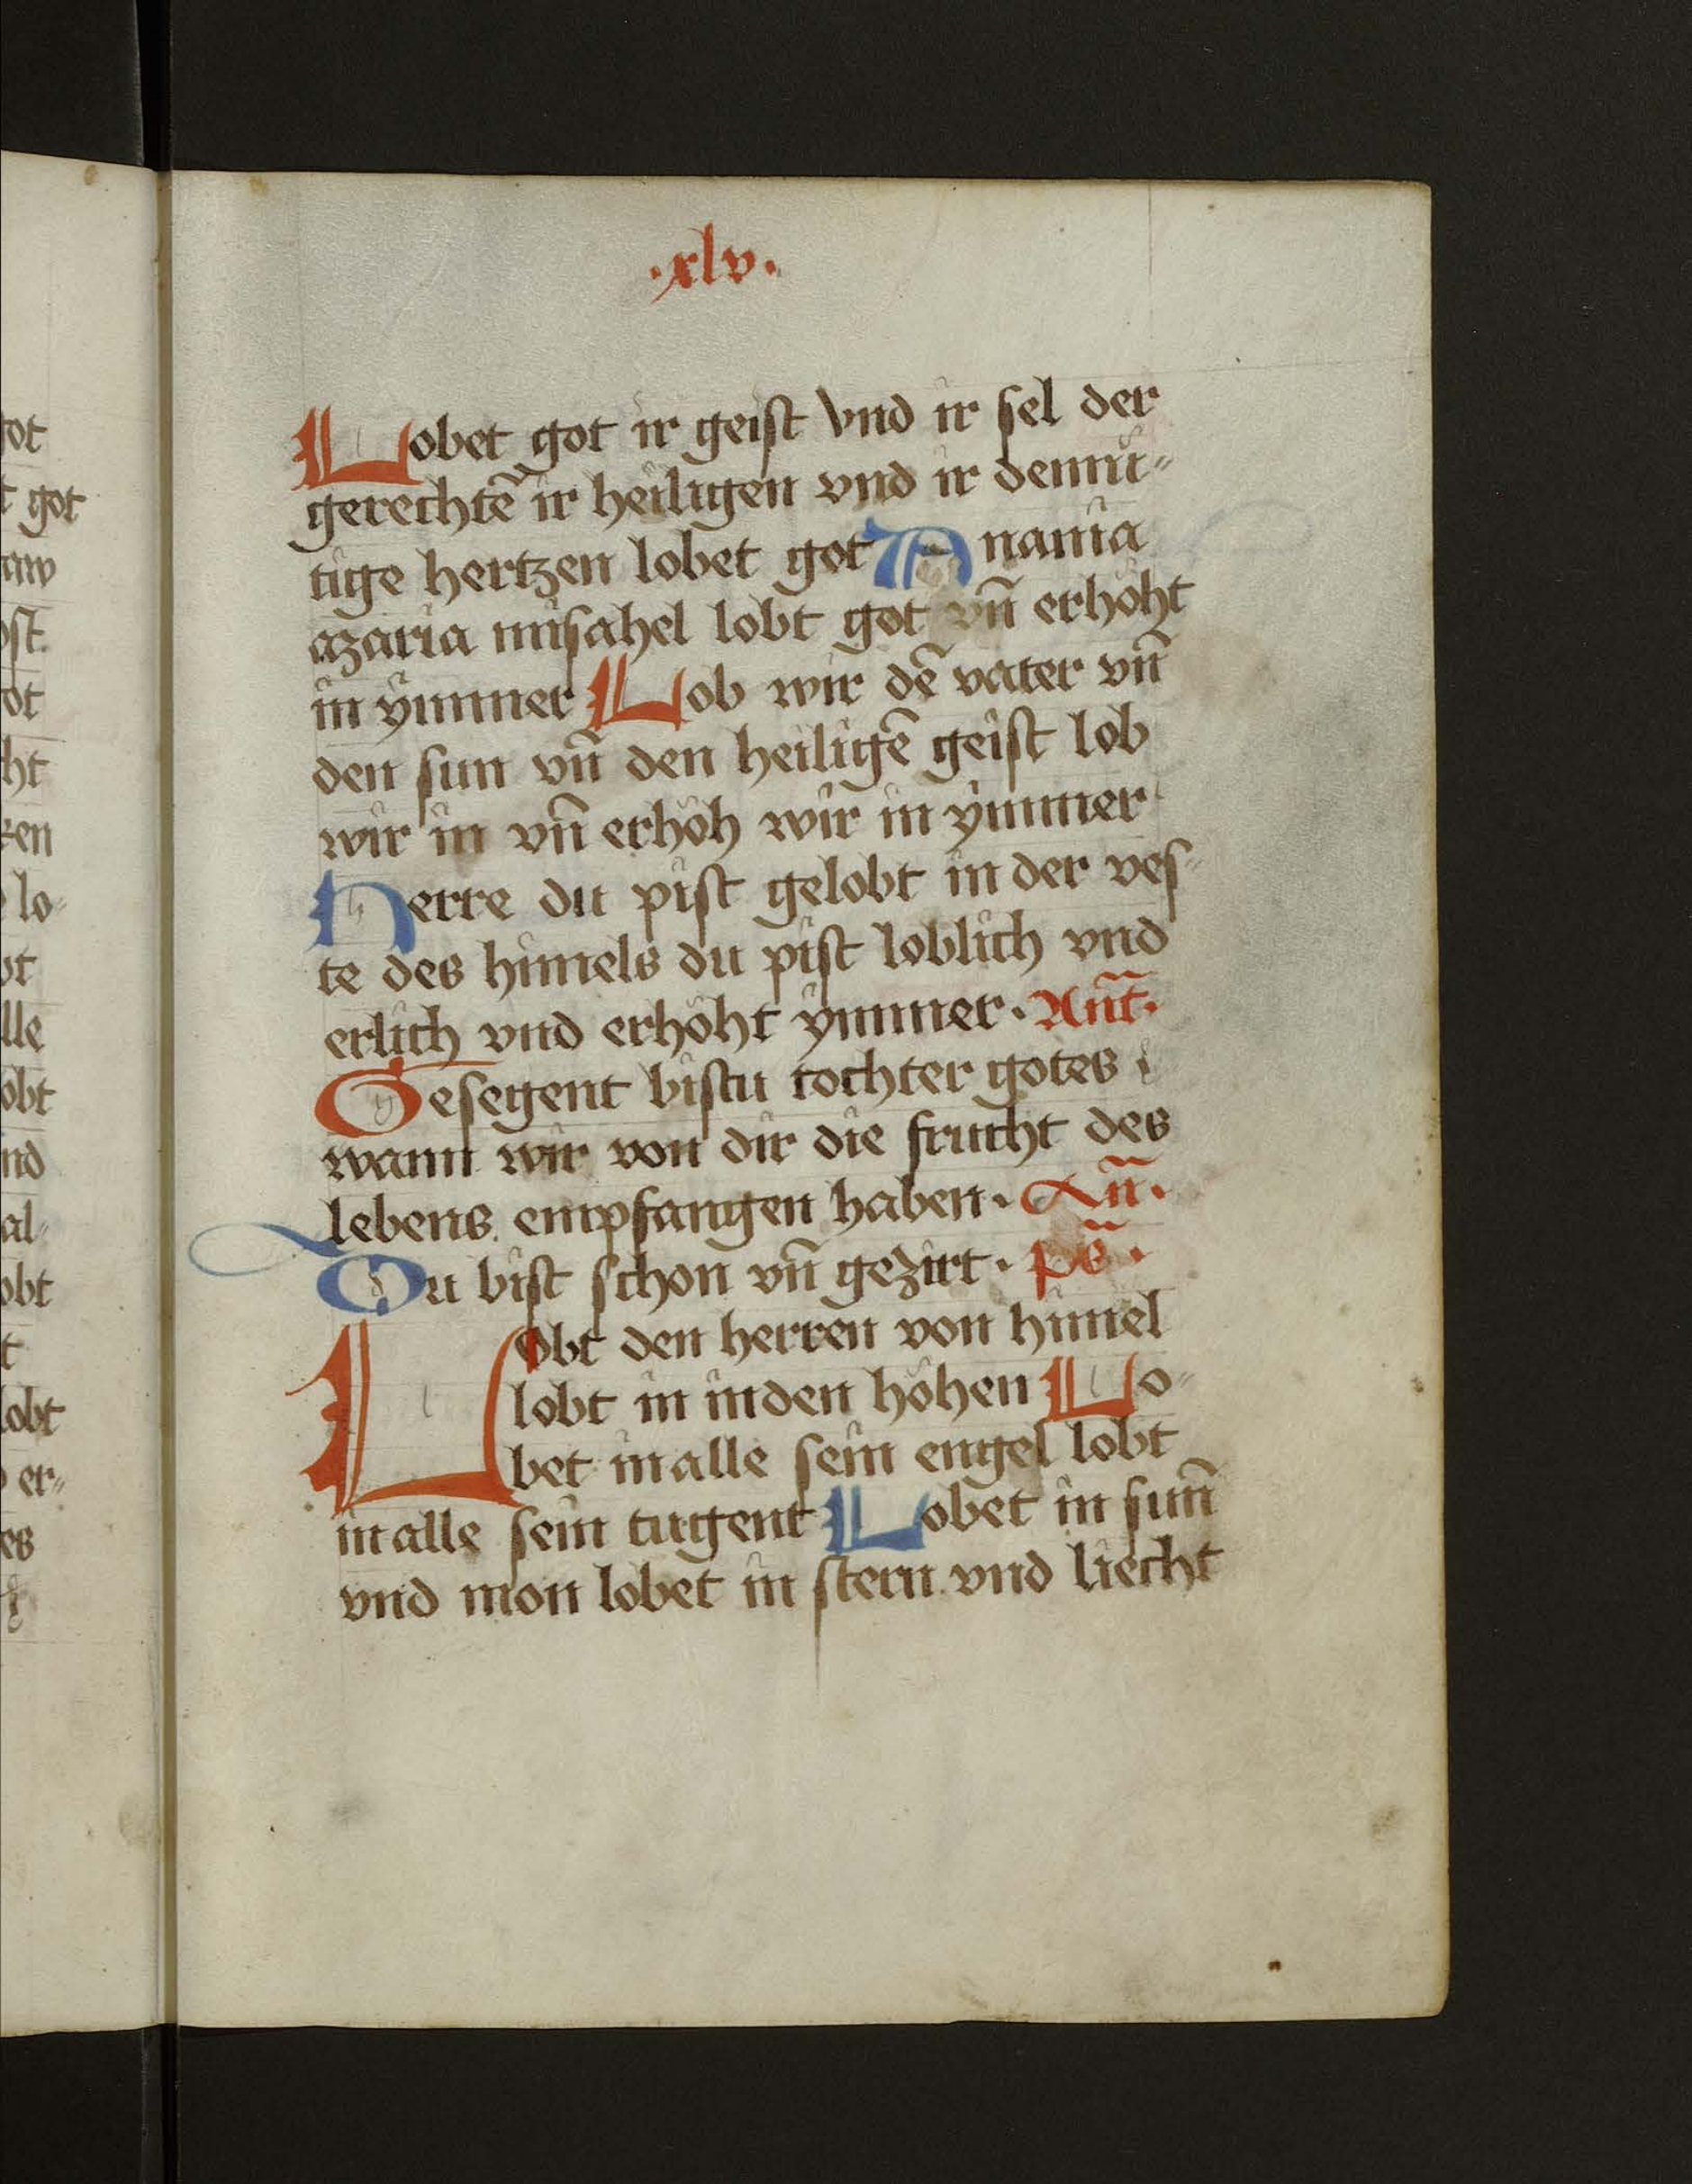 ·xlv·
Lobet got ir geist vnd ir sel der
gerechtē ir heiligen vnd ir demu〃
tige hertzen lobet got Anania
azaria misahel lobt got vn̄ erhöht
in ymmer Lob wir dē vater vn̄
den sun vn̄ den heiligē geist lob
wir in vn̄ erhöh wir in ymmer
Herre du pist gelobt in der ves〃
te des himels du pist loblich vnd
erlich vnd erhöht ymmer· Ant̄·
Gesegent bistu tochter gotes
wann wir von dir die frucht des
lebens empfangen haben· An̄·
Du bist schon vn̄ gezirt· ps̄·
Lobt den herren von himel
lobt in in den höhen Lo〃
bet in alle sein engel lobt
in alle sein tugent Lobet in sun̄
vnd mon lobet in stern vnd liecht